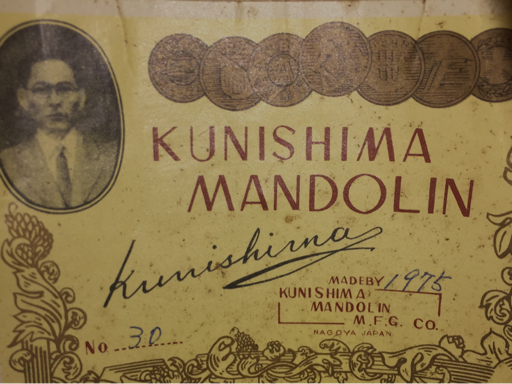 KUNISHIMA
MANDOLIN
Kunishima
MADE BY 1975
KUNISHIMA
MANDOLIN
M.F.G. CO.
NAGOYA JAPAN
No. 30